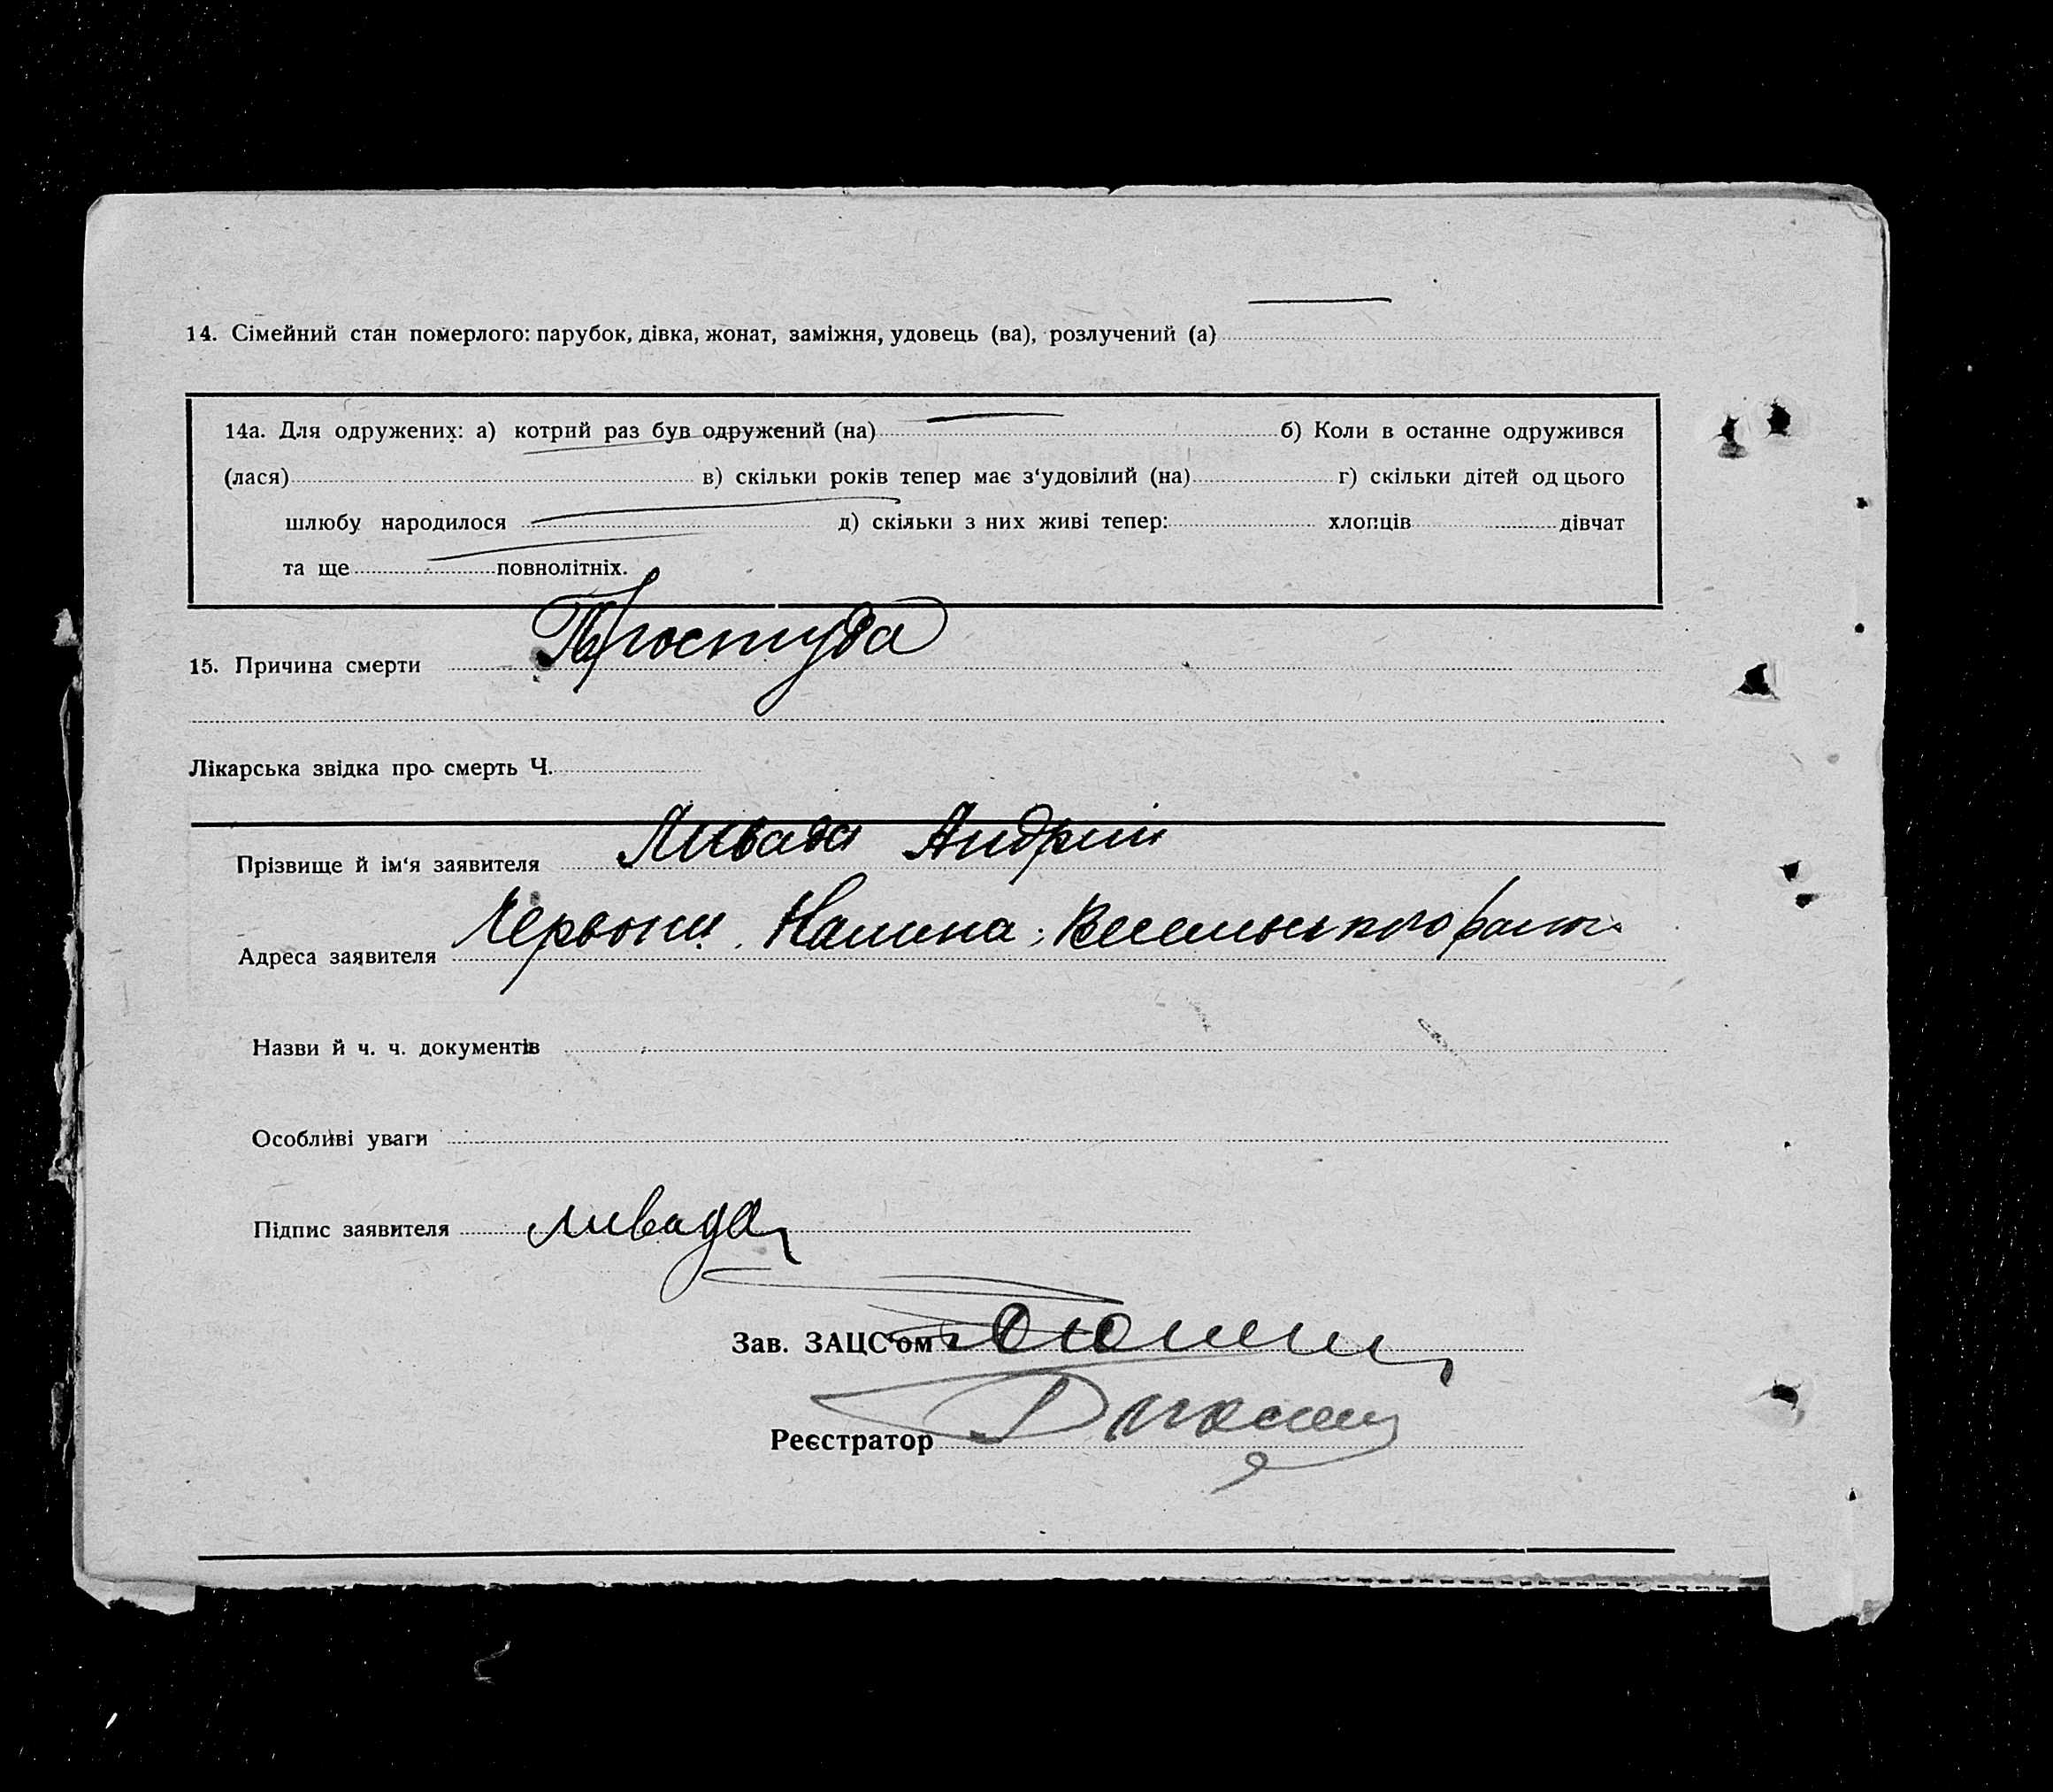 14. Сімейний стан померлого: парубок, дівка, жонат, заміжня, удовець (ва), розлучений (а)
14а. Для одружених: а) котрий раз був одружений (на) б) Коли в останнє одружився
(лася) в) скільки років тепер має з‘удовілий (на) г) скільки дітей од цього
шлюбу народилося д) скільки з них живі тепер: хлопців дівчат
та ще повнолітніх.
15. Причина смерти Простуда
Лікарська звідка про смерть Ч.
Прізвище й ім‘я заявителя Ливада Андрий
Адреса заявителя
Назви й ч. ч. документів
Особливі уваги
Підпис заявителя Ливада
Зав. ЗАЦС‘ом
Реєстратор